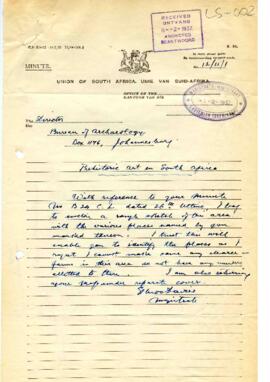 LS-002
RECEIVED
ONTVANG
ANSWERED
BEANTWOORD
MINUTE.
UNION OF SOUTH AFRICA. UNIE VAN SUID-AFRIKA.
OFFICE OF THE
KANTOOR VAN DIE
The Director
Bureau of Archaeology
Box 1176, Johannesburg
Prehistoric Art in South Africa
With reference to your Minute
No B 24 C.L. dated 26th ultimo, I beg
to enclose a rough sketch of the area
with the various places named by you
marked thereon. I trust this will
enable you to identify the places as I
regret I cannot make same any clearer -
farms in this area do not bear any numbers
allotted to them. I am also returning
your under separate cover.
Magistrate